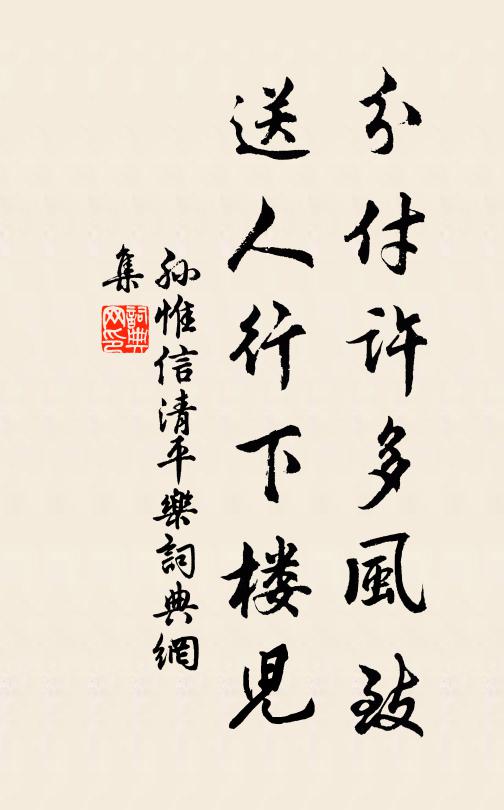 分付许多風致
送人行下楼児
孙惟信清平樂詞典網
集
詞典
网印